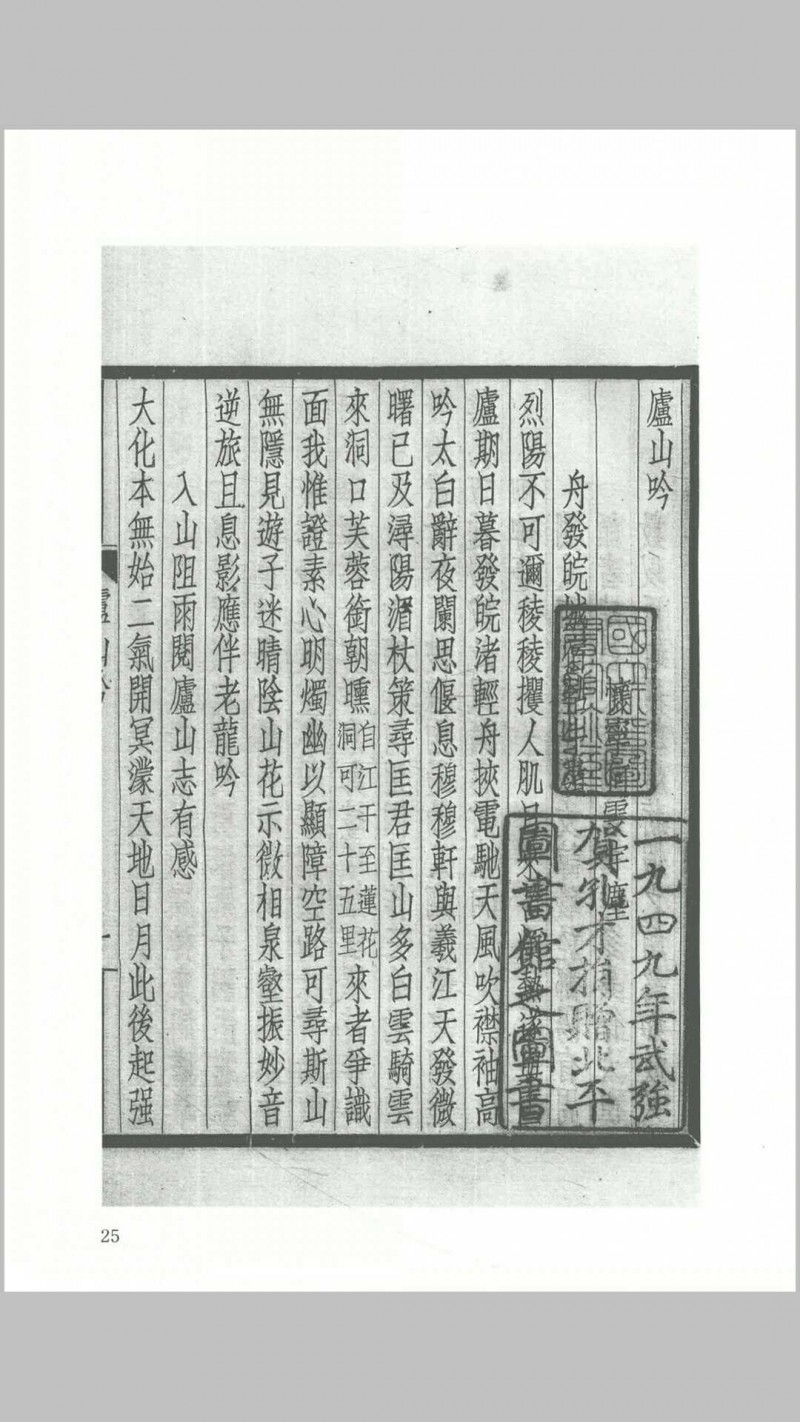 廬山吟
舟發皖城
烈陽不可邇稜稜攫人肌
廬期日暮發皖渚輕舟挾電馳天風吹襟袖高
吟太白辭夜闌思偃息穆穆軒與羲江天發微
曙已及潯陽湄杖策尋匡君匡山多白雲騎雲
來洞口芙蓉銜朝曛自江干至蓮花洞可二十五里來者爭識
面我惟證素心明燭幽以顯障空路可尋斯山
無隱見遊子迷晴陰山花示微相泉壑振妙音
逆旅且息影應伴老龍吟
入山阻雨閱廬山志有感
大化本無始二氣開冥濛天地日月此後起强
一九四九年武强
賀孔才捐贈北平
圖書館之圖書
25